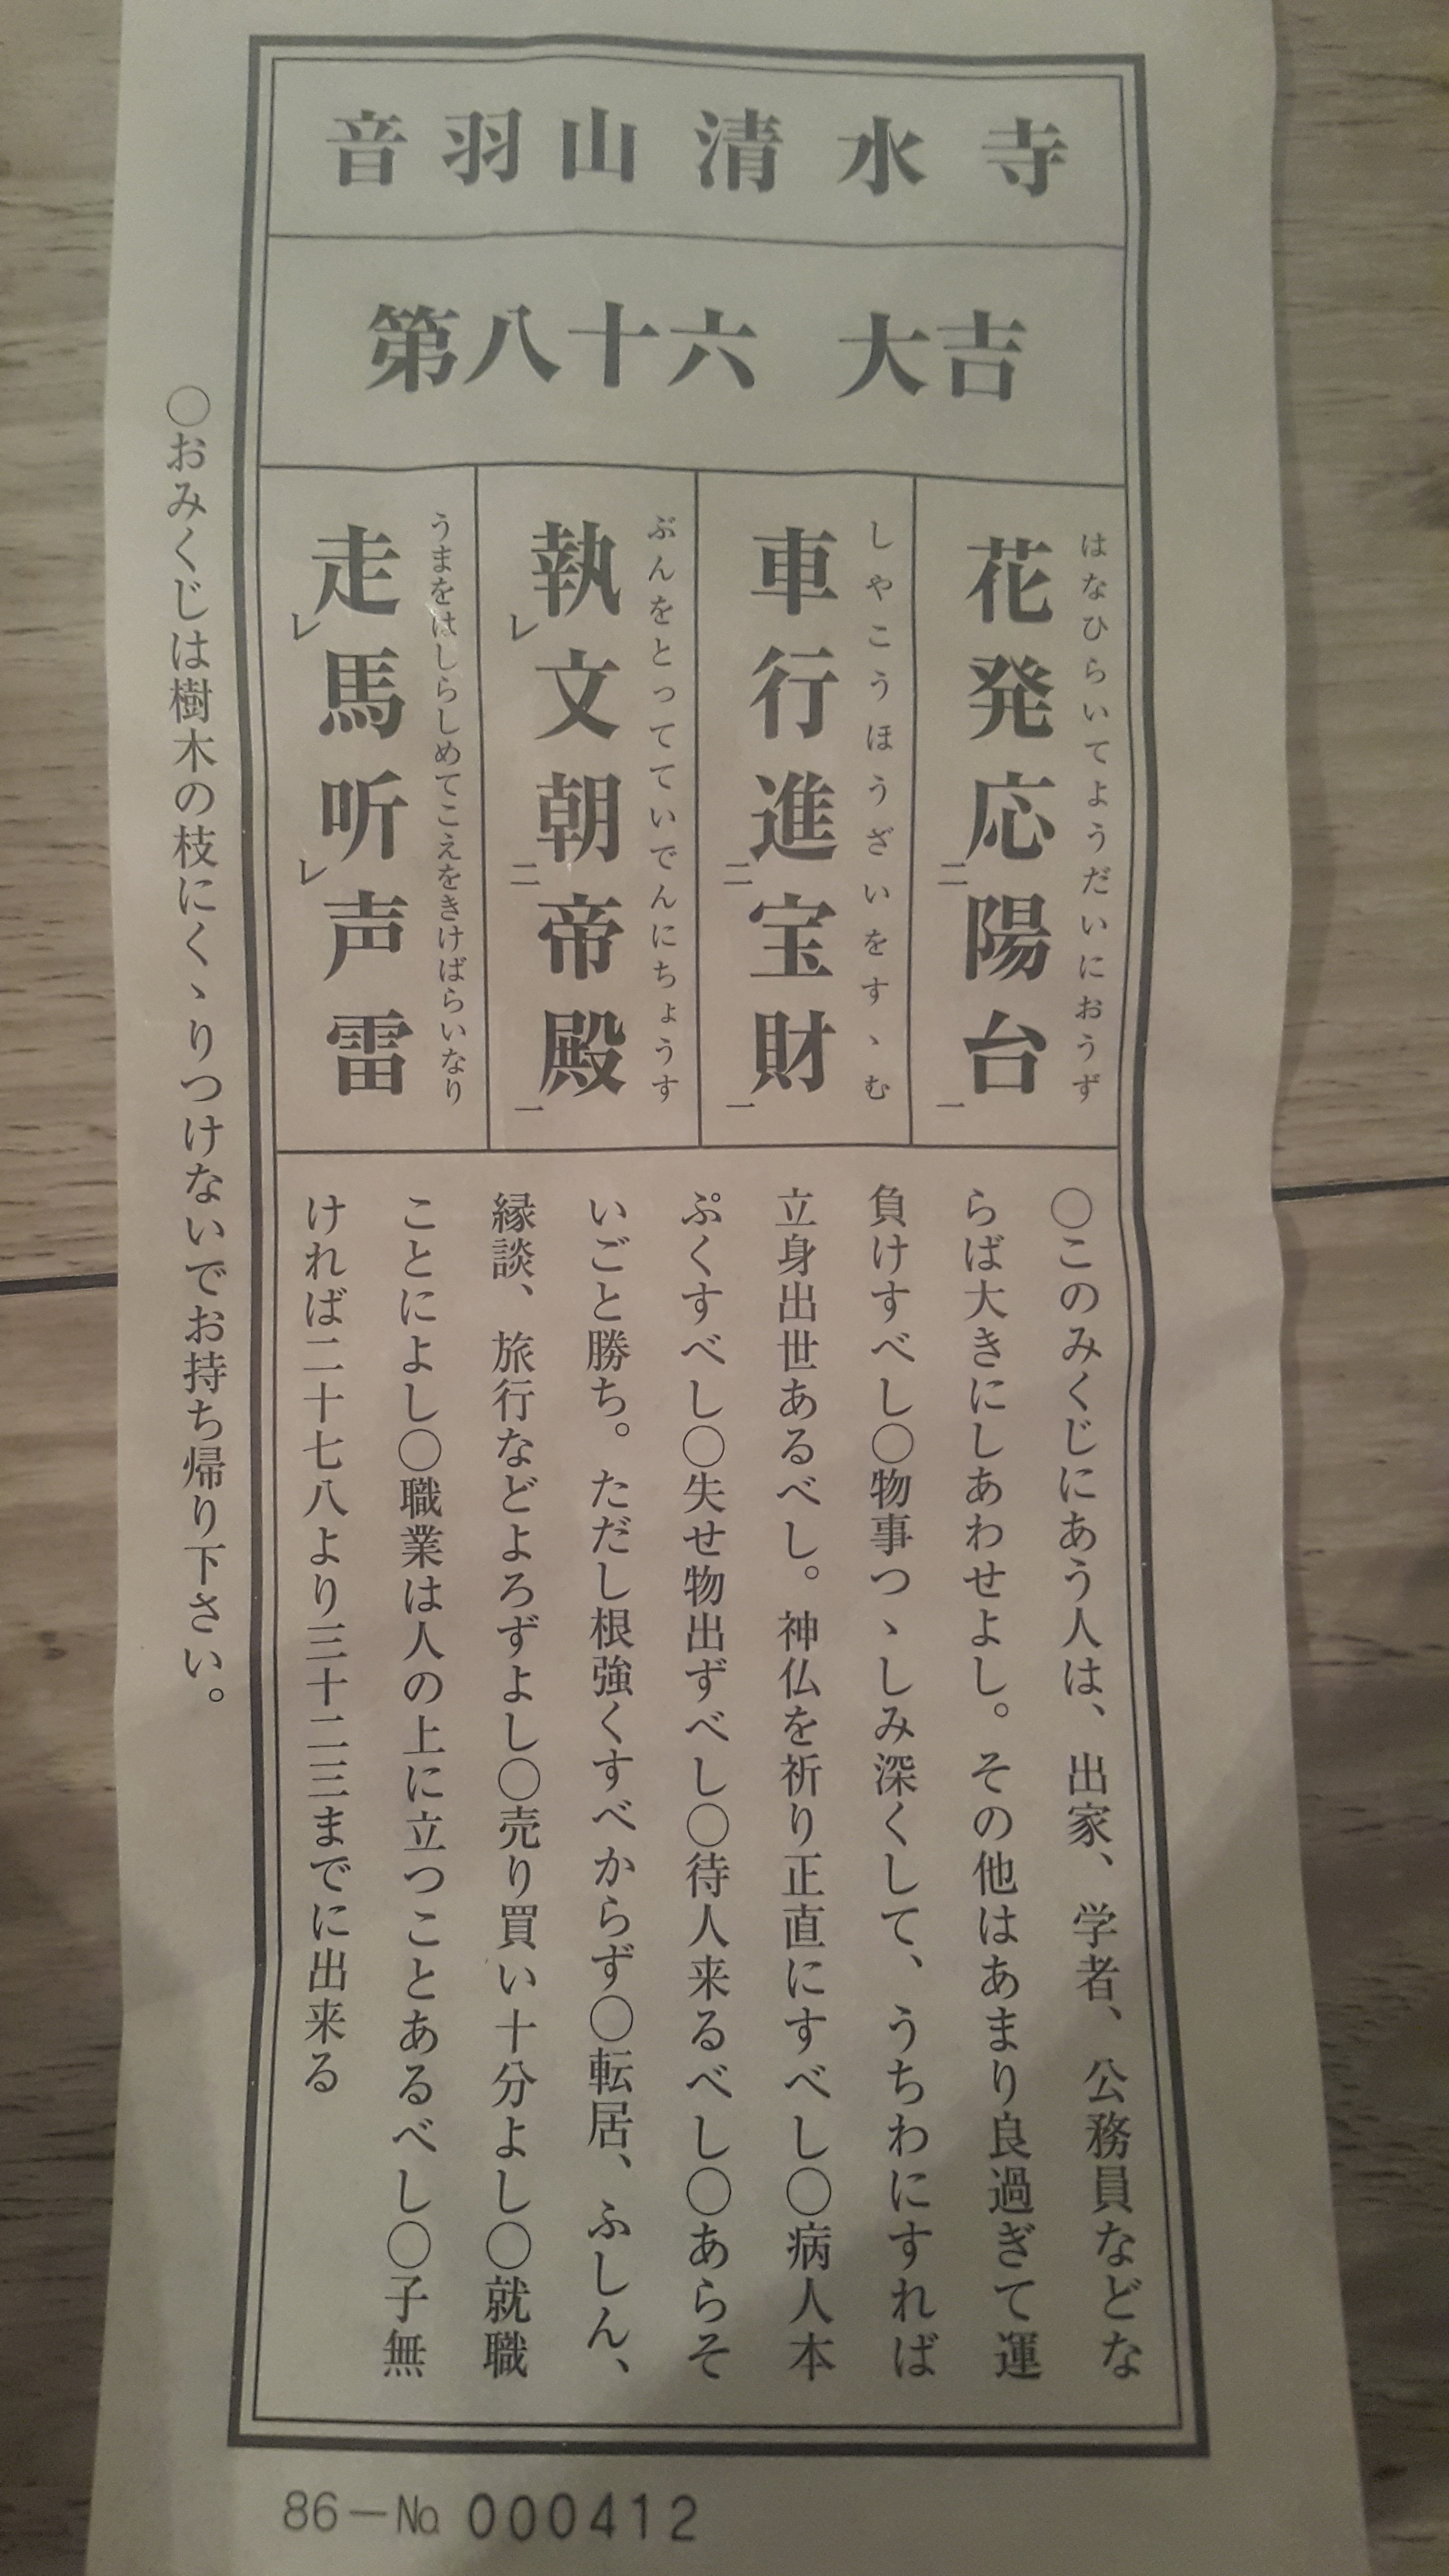 音羽山清水寺
第八十六 大吉
はなひらいてようだいにおうず
花発応二陽台一
しやこうほうざいをすゝむ
車行進二宝財一
ぶんをとってていでんにちょうす
執レ文朝二帝殿一
うまをはしらしめてこえをきけばらいなり
走レ馬听レ声雷
○このみくじにあう人は、出家、学者、公務員などな
らば大きにしあわせよし。その他はあまり良過ぎて運
負けすべし○物事つゝしみ深くして、うちわにすれば
立身出世あるべし。神仏を祈り正直にすべし○病人本
ぷくすべし○失せ物出ずべし○待人来るべし○あらそ
いごと勝ち。ただし根強くすべからず○転居、ふしん、
縁談、旅行などよろずよし○売り買い十分よし○就職
ことによし○職業は人の上に立つことあるべし○子無
ければ二十七八より三十二三までに出来る
○おみくじは樹木の枝にくゝりつけないでお持ち帰り下さい。
86－№ 000412